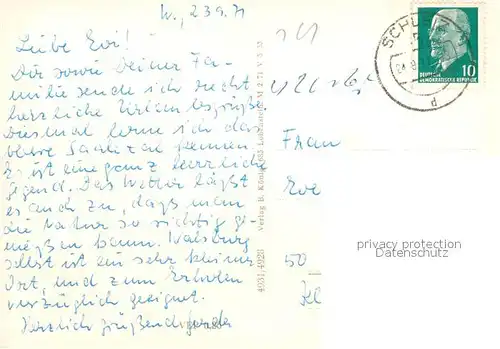 W., 23.9.71
Liebe Evi!
Dir sowie Deiner Fa-
milie sende ich recht
herrliche Urlaubsgrüße.
Diesmal lerne ich das
obere Saaletal kennen.
Es ist eine ganz herrliche
Gegend. Das Wetter läßt
es auch zu, daß man
die Natur so richtig ge-
nießen kann. Walsburg
selbst ist ein sehr kleiner
Ort, und zum Erholen
vorzüglich geeignet.
Herzlich grüßend
4931/4928
Verlag B. König, 685 Lobenstein M 2/71 V 5 35
SCHL
DEUTSCHE
DEMOKRATISCHE REPUBLIK
10
d
Frau
Eve
50
privacy protection
Datenschutz